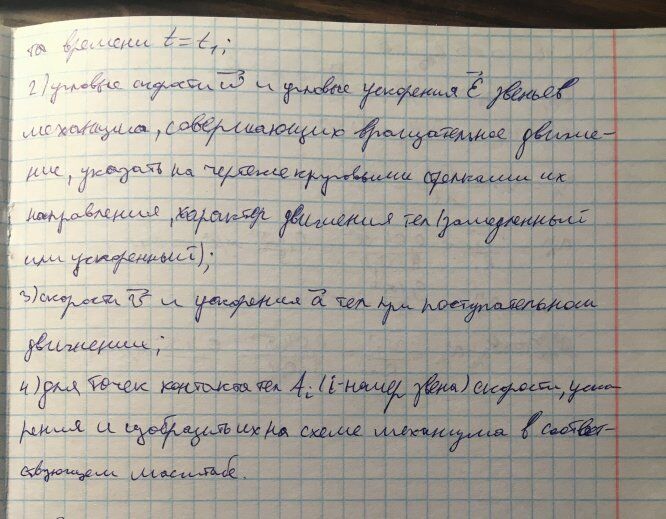 та времени t = t₁;
2) угловые скорости ω⃗ и угловые ускорения ε⃗ звеньев
механизма, совершающих вращательное движе-
ние, указать на чертеже круговыми стрелками их
направления, характер движения тел (замедленный
или ускоренный);
3) скорости v⃗ и ускорения a⃗ тел при поступательном
движении;
4) для точек контакта тел Aᵢ (i-номер звена) скорости, уско-
рения и изобразить их на схеме механизма в соответ-
ствующем масштабе.